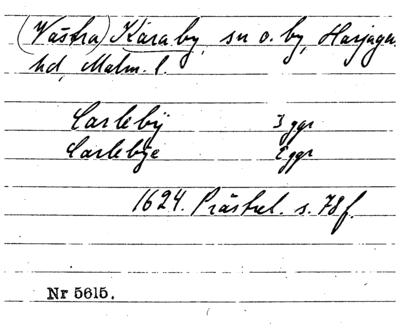 (Västra) Käraby, sn o. by, Harjagers
hd, Malm. l.
Carlebÿ 3 ggr
Carlebÿe 2 ggr
1624. Prästrel. s. 78 f.
Nr 5615.